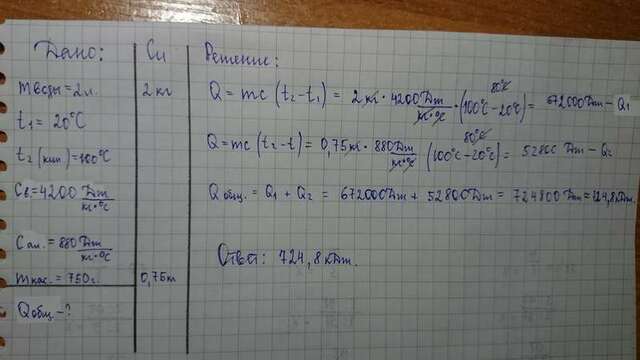 Дано:
mводы=2л.
t₁ = 20°С
t₂ (кип)=100°С
Св=4200 Дж/кг·°С
Сал.=880 Дж/кг·°С
mкас. = 750г.
Qобщ.-?
Си
2 кг
0,75кг
Решение:
80°С
Q = mc (t₂-t₁) = 2 кг · 4200 Дж/кг·°С · (100°С-20°С) = 672000Дж - Q₁
80°С
Q=mc (t₂-t) = 0,75кг · 880 Дж/кг·°С (100°С-20°С) = 52800 Дж - Q₂
Q общ. = Q₁ + Q₂ = 672000Дж + 52800Дж = 724800Дж=724,8кДж.
Ответ: 724,8кДж.